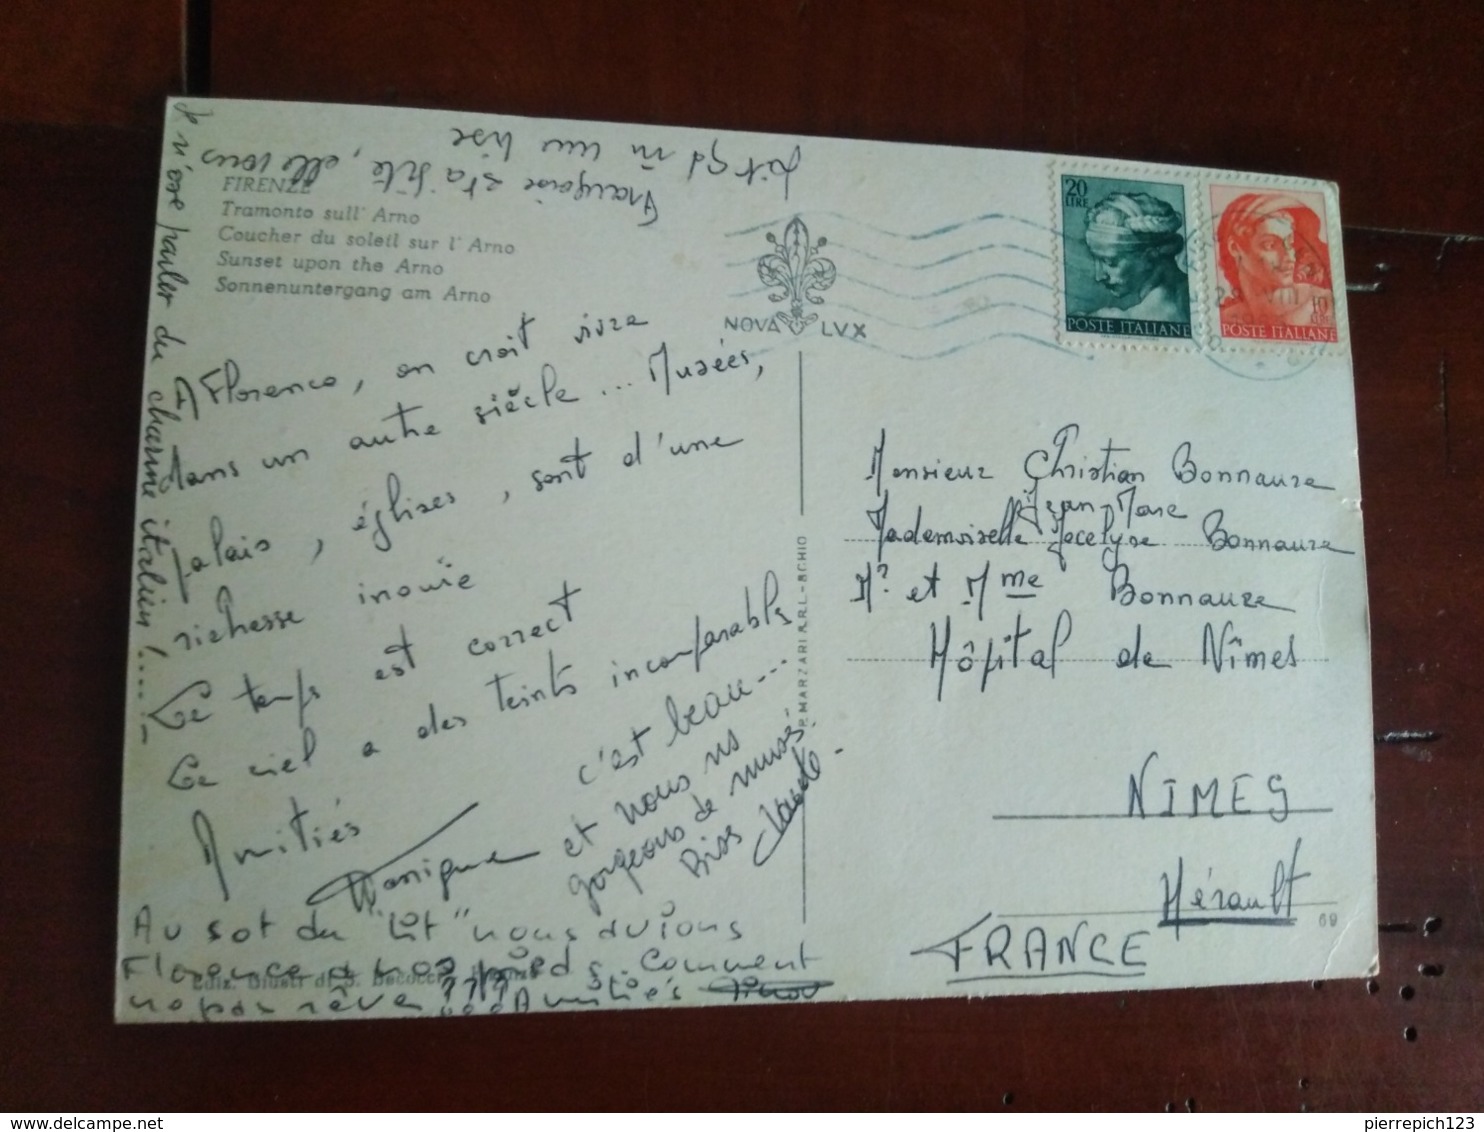 FIRENZE
Tramonto sull' Arno
Coucher du soleil sur l' Arno
Sunset upon the Arno
Sonnenuntergang am Arno
NOVA LVX
20 LIRE
POSTE ITALIANE
10
POSTE ITALIANE
A Florence, on croit vivre
dans un autre siècle... Musées,
palais, églises, sont d'une
richesse inouïe
Le temps est correct
Le ciel a des teints incomparables
Amitiés
Monique
c'est beau...
et nous ns
gorgeons de musées.
Bises
Au sot du "lit" nous avions
Florence à nos pieds. Comment
ne pas rêver??? Amitiés
Je n'ose parler du charme italien!.....
Françoise
elle vous
fait
une bise
Edit. Illustr. di S. Becocci
P. MARZARI S.R.L.-SCHIO
Monsieur Christian Bonnaure
Jean-Marc
Mademoiselle Jocelyne Bonnaure
Mr et Mme Bonnaure
Hôpital de Nîmes
NIMES
Hérault
FRANCE
69
pierrepich123